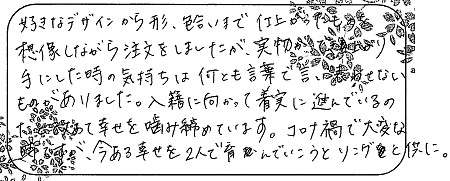 好きなデザインから形、色合いまで仕上がりも
想像しながら注文をしましたが、実物が
手にした時の気持ちは何とも言葉で言い表せない
ものがありました。入籍に向かって着実に進んでいるの
めて幸せを噛み締めています。コロナ禍で大変な
時ですが、今ある幸せを2人で育んでいこうとリングと供に。